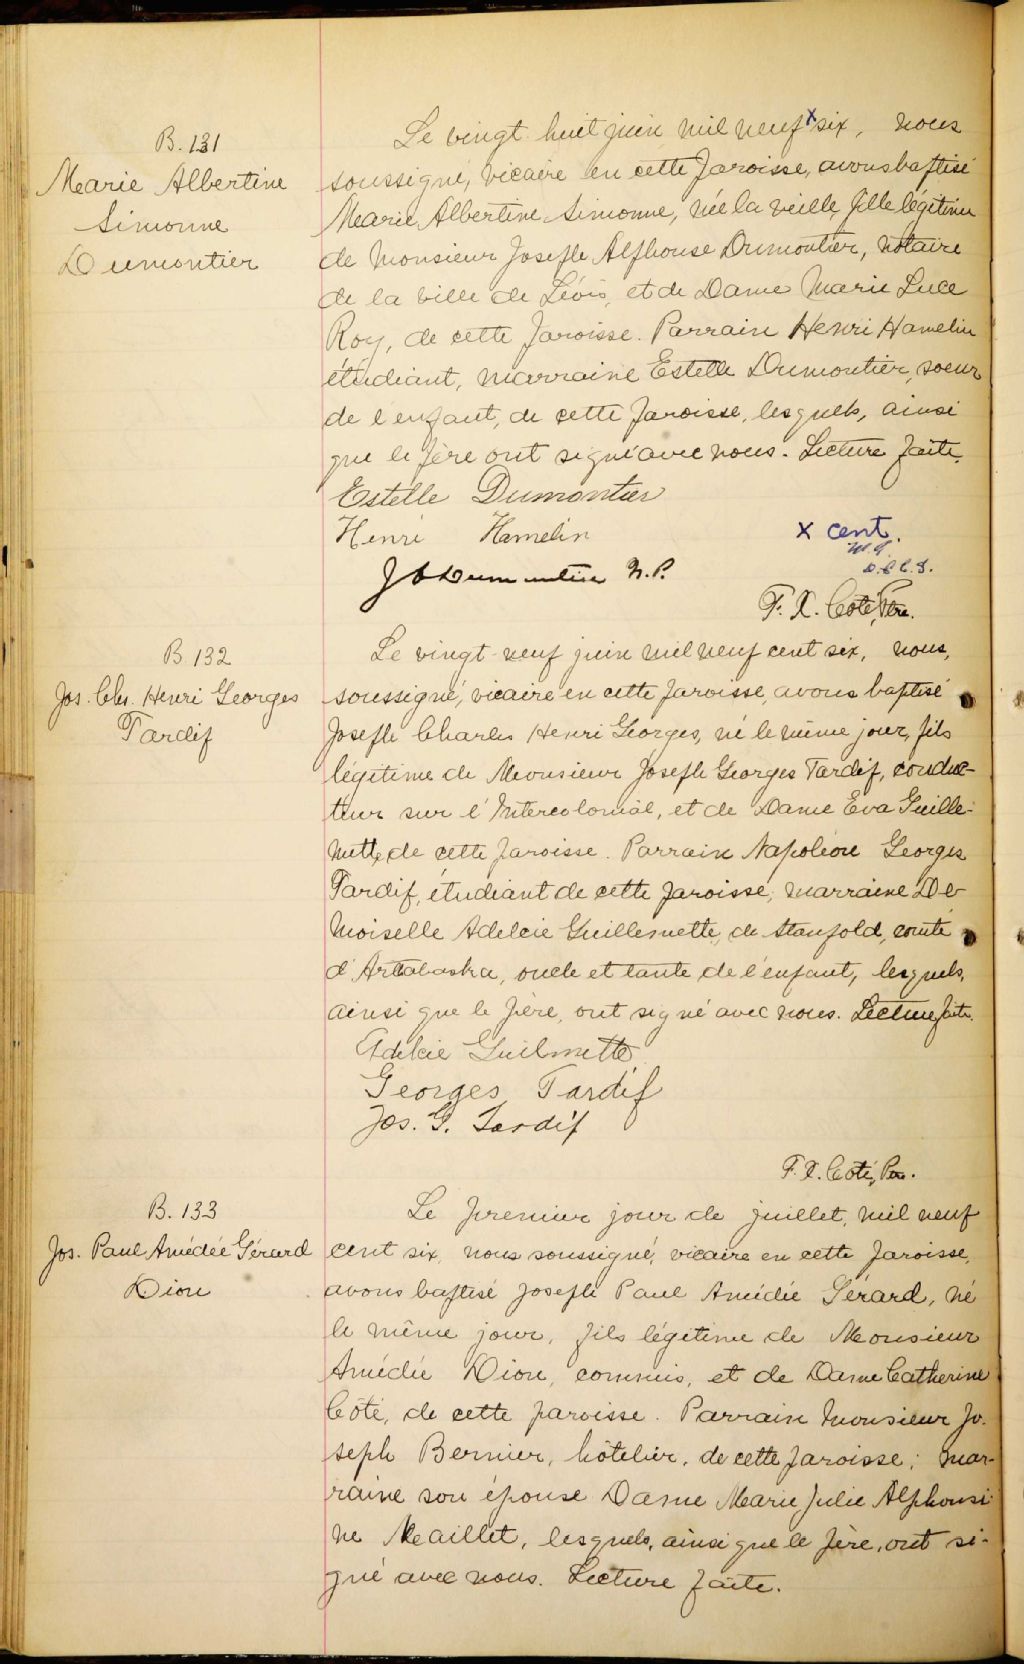 B. 131
Marie Albertine
Simonne
Dumontier
Le vingt huit juin mil neuf x six, nous
soussigné, vicaire en cette paroisse, avons baptisé
Marie Albertine Simonne, née la veille, fille légitime
de Monsieur Joseph Alphonse Dumontier, notaire
de la ville de Lévis, et de Dame Marie Luce
Roy, de cette paroisse. Parrain Henri Hamelin
étudiant, marraine Estelle Dumontier, soeur
de l'enfant, de cette paroisse, lesquels, ainsi
que le père ont signé avec nous. Lecture faite.
Estelle Dumontier
Henri Hamelin
x cent.
J A Dumontier N.P.
F. X. Côté, Ptre.
B. 132
Jos. Chs. Henri Georges
Tardif
Le vingt-neuf juin mil neuf cent six, nous,
soussigné, vicaire en cette paroisse, avons baptisé
Joseph Charles Henri Georges, né le même jour, fils
légitime de Monsieur Joseph Georges Tardif, conduc-
teur sur l'Intercolonial, et de Dame Eva Guille-
mette, de cette paroisse. Parrain Napoléon Georges
Tardif, étudiant de cette paroisse, marraine De-
moiselle Adelcie Guillemette, de Stanfold, comté
d'Arthabaska, oncle et tante de l'enfant, lesquels,
ainsi que le père, ont signé avec nous. Lecture faite.
Adelcie Guilmette
Georges Tardif
Jos. G. Tardif
F. X. Côté, Ptre.
B. 133
Jos. Paul Amédée Gérard
Dion
Le premier jour de juillet, mil neuf
cent six, nous soussigné, vicaire en cette paroisse,
avons baptisé Joseph Paul Amédée Gérard, né
le même jour, fils légitime de Monsieur
Amédée Dion, commis, et de Dame Catherine
Côté, de cette paroisse. Parrain Monsieur Jo-
seph Bernier, hôtelier, de cette paroisse; mar-
raine son épouse Dame Marie Julie Alphonsi-
ne Maillet, lesquels, ainsi que le père, ont si-
gné avec nous. Lecture faite.